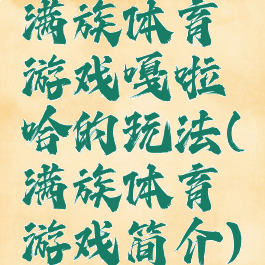 满族体育
游戏嘎啦
哈的玩法(
满族体育
游戏简介)